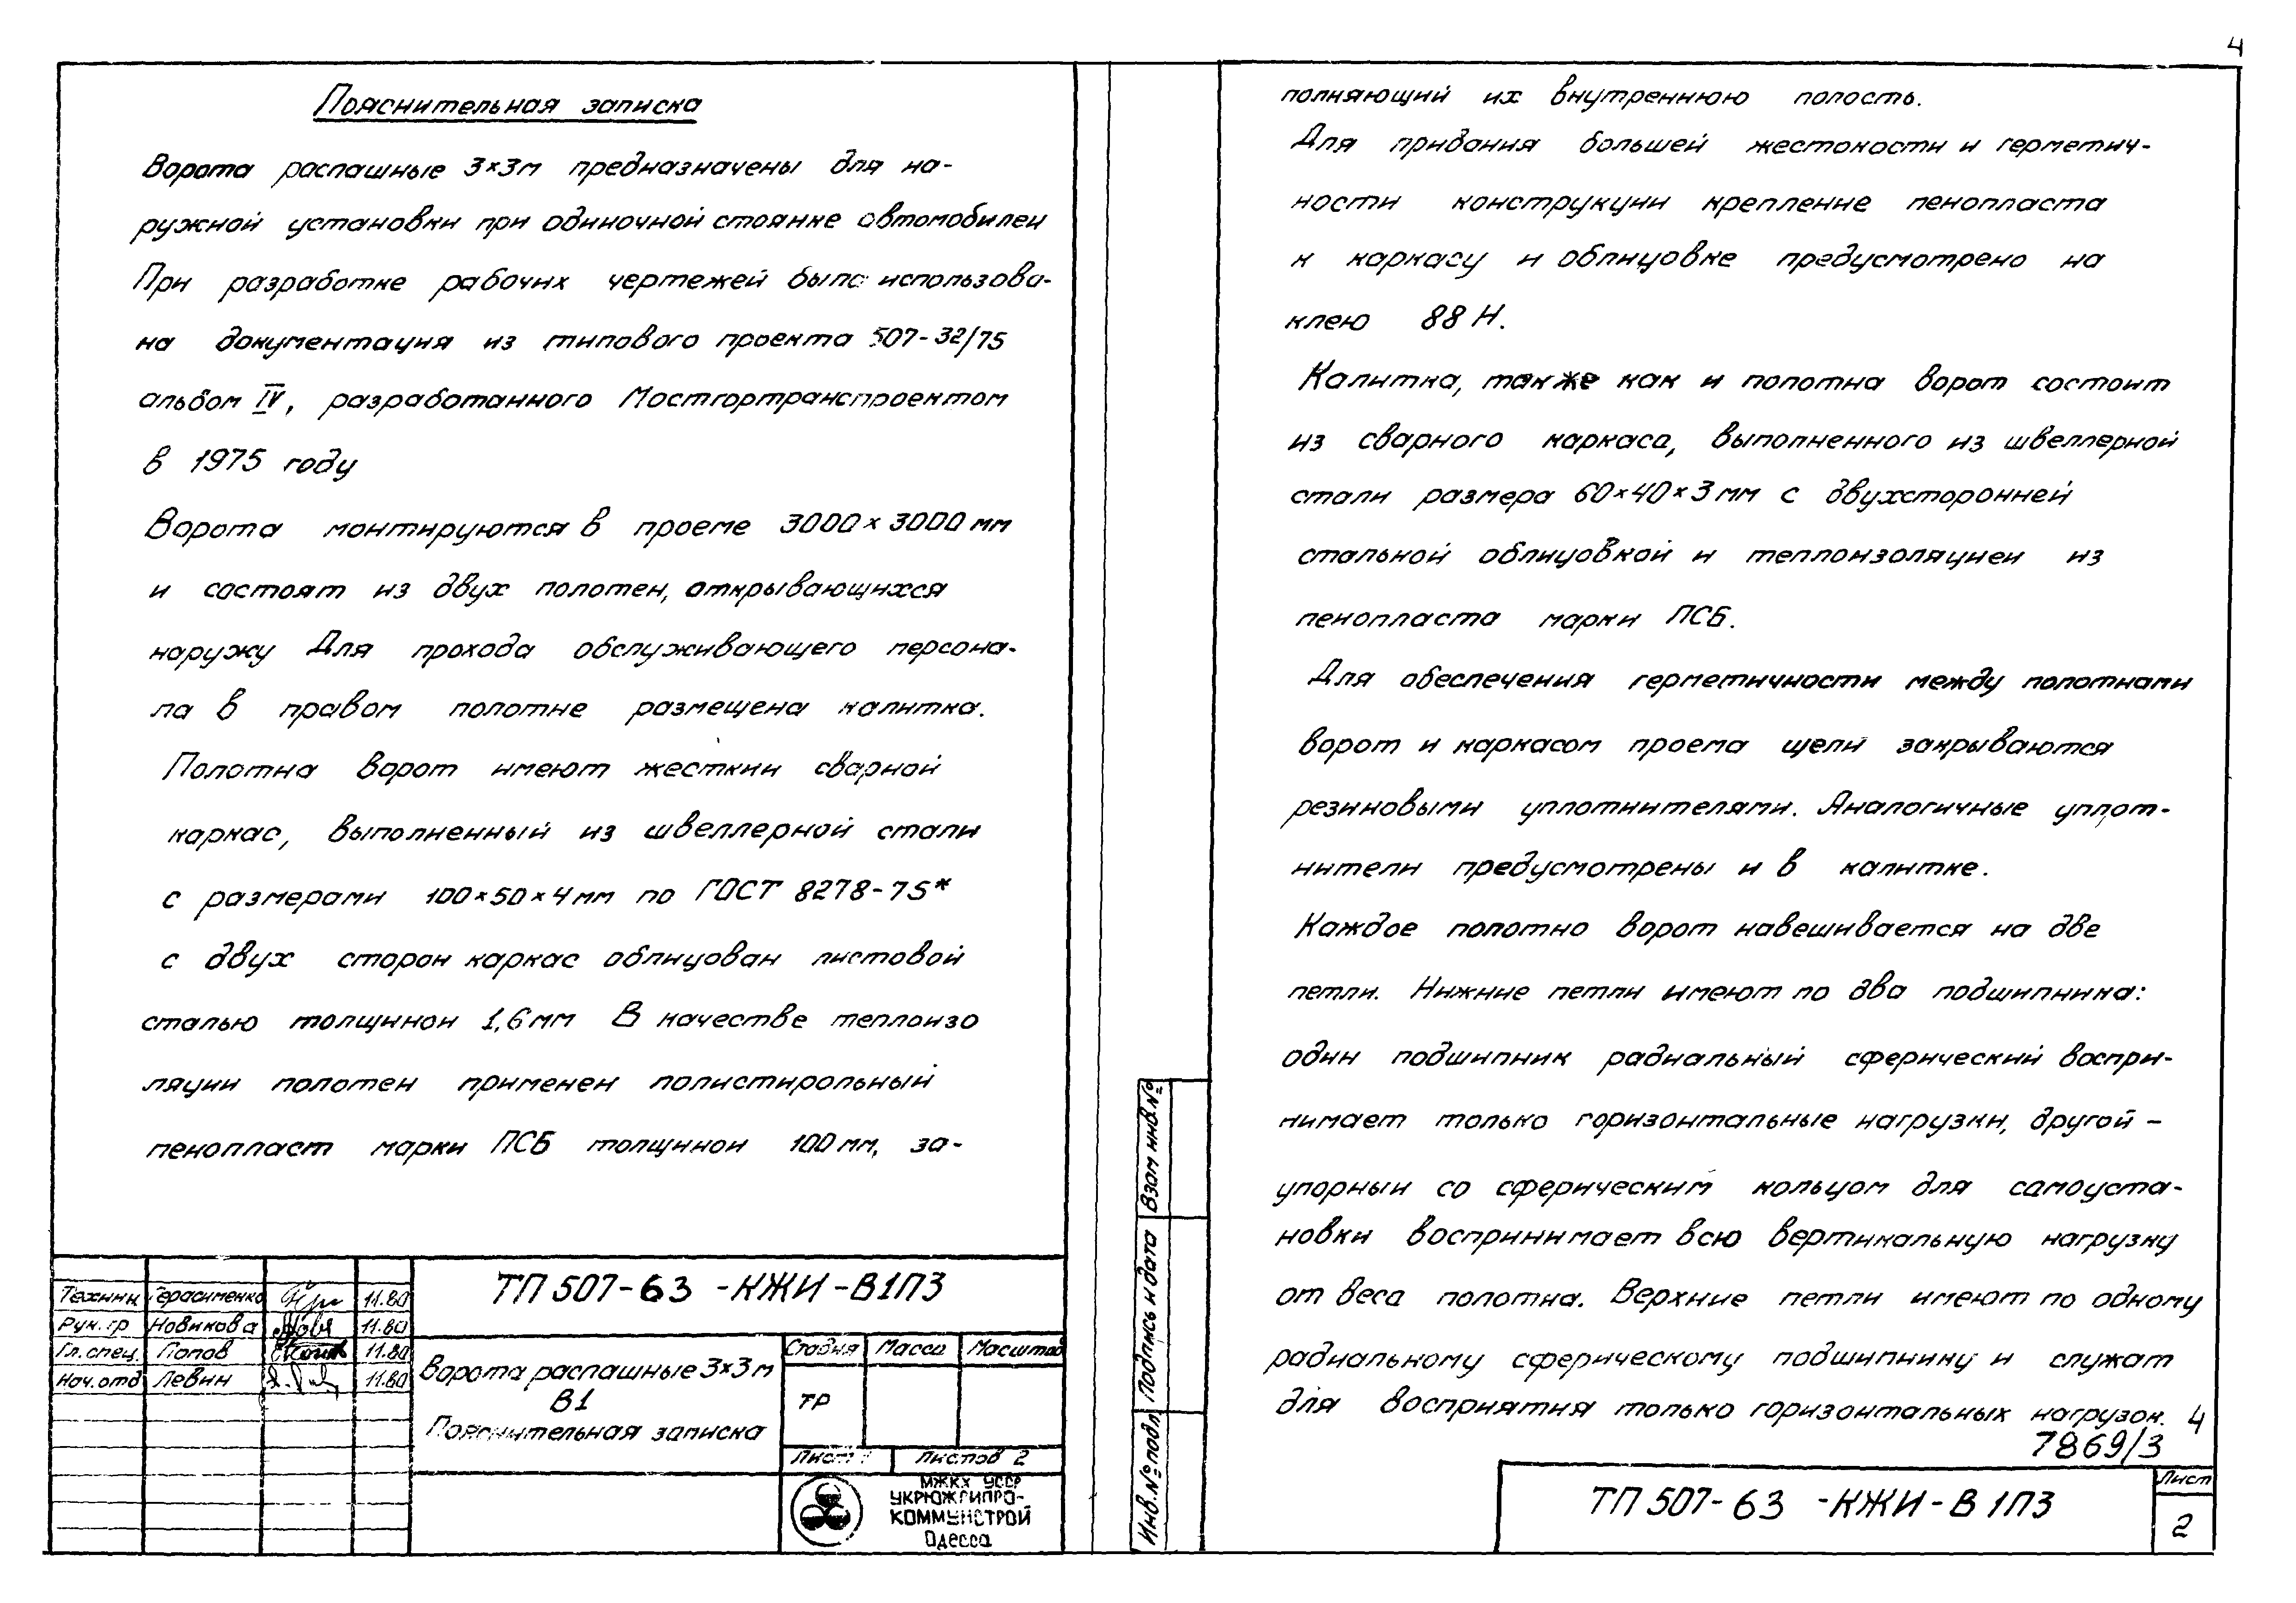 4
Пояснительная записка
Ворота распашные 3×3м предназначены для на-
ружной установки при одиночной стоянке автомобилей
При разработке рабочих чертежей была использова-
на документация из типового проекта 507-32/75
альбом IV, разработанного Мосгортранспроектом
в 1975 году
Ворота монтируются в проеме 3000×3000мм
и состоят из двух полотен, открывающихся
наружу Для прохода обслуживающего персона-
ла в правом полотне размещена калитка.
Полотна ворот имеют жесткий сварной
каркас, выполненный из швеллерной стали
с размерами 100×50×4мм по ГОСТ 8278-75*
с двух сторон каркас облицован листовой
сталью толщиной 1,6мм В качестве теплоизо
ляции полотен применен полистирольный
пенопласт марки ПСБ толщиной 100мм, за-
полняющий их внутреннюю полость.
Для придания большей жесткости и герметич-
ности конструкции крепление пенопласта
к каркасу и облицовке предусмотрено на
клею 88Н.
Калитка, также как и полотна ворот состоит
из сварного каркаса, выполненного из швеллерной
стали размера 60×40×3мм с двухсторонней
стальной облицовкой и теплоизоляцией из
пенопласта марки ПСБ.
Для обеспечения герметичности между полотнами
ворот и каркасом проема щели закрываются
резиновыми уплотнителями. Аналогичные уплот-
нители предусмотрены и в калитке.
Каждое полотно ворот навешивается на две
петли. Нижние петли имеют по два подшипника:
один подшипник радиальный сферический воспри-
нимает только горизонтальные нагрузки, другой –
упорный со сферическим кольцом для самоуста-
новки воспринимает всю вертикальную нагрузку
от веса полотна. Верхние петли имеют по одному
радиальному сферическому подшипнику и служат
для восприятия только горизонтальных нагрузок.
4
7869/3
Техник Герасименко 11.80
Рук. гр Новикова 11.80
Гл. спец. Попов 11.80
Нач. отд Левин 11.80
ТП 507-63 -КЖИ-В1ПЗ
Ворота распашные 3×3м
В1
Пояснительная записка
Стадия Масса Масштаб
ТР
Лист 1 Листов 2
МЖКХ УССР
УКРЮЖГИПРО-
КОММУНСТРОЙ
Одесса
Взам инв.№
Подпись и дата
Инв.№ подл
ТП 507-63 -КЖИ-В1ПЗ
Лист
2